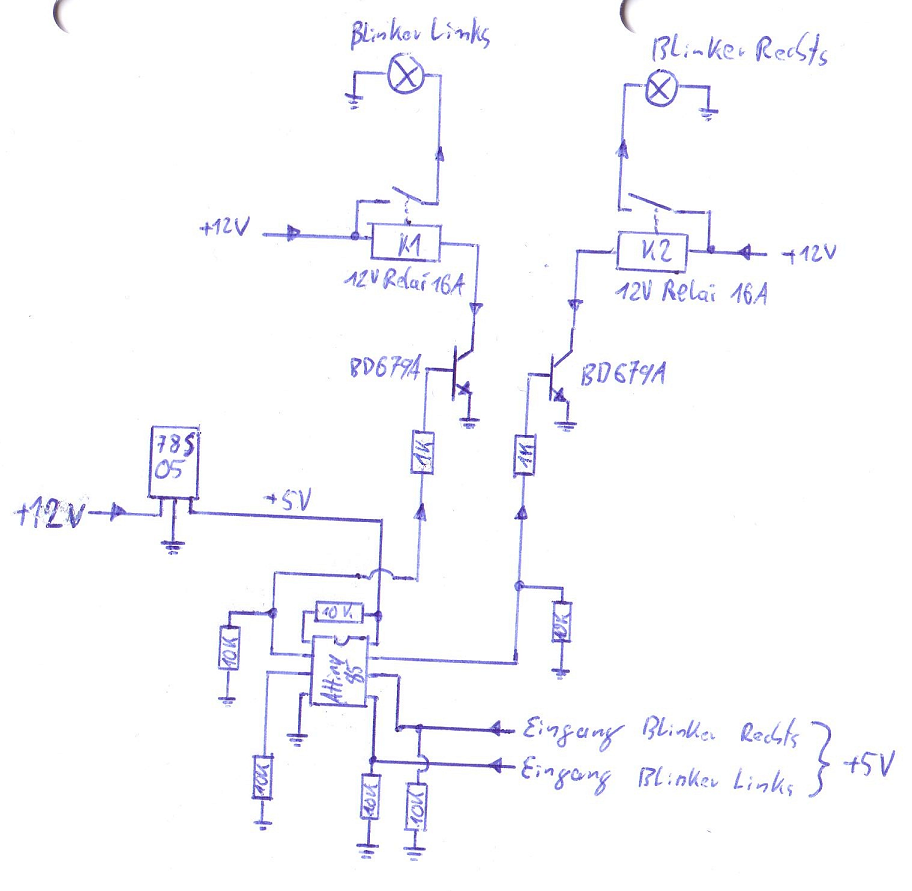 Blinker Links
Blinker Rechts
+12V
K1
12V Relai 16A
K2
+12V
12V Relai 16A
BD679A
BD679A
1K
1K
78S
05
+12V
+5V
10K
10K
10K
Attiny
85
10K
10K
10K
Eingang Blinker Rechts
Eingang Blinker Links
+5V